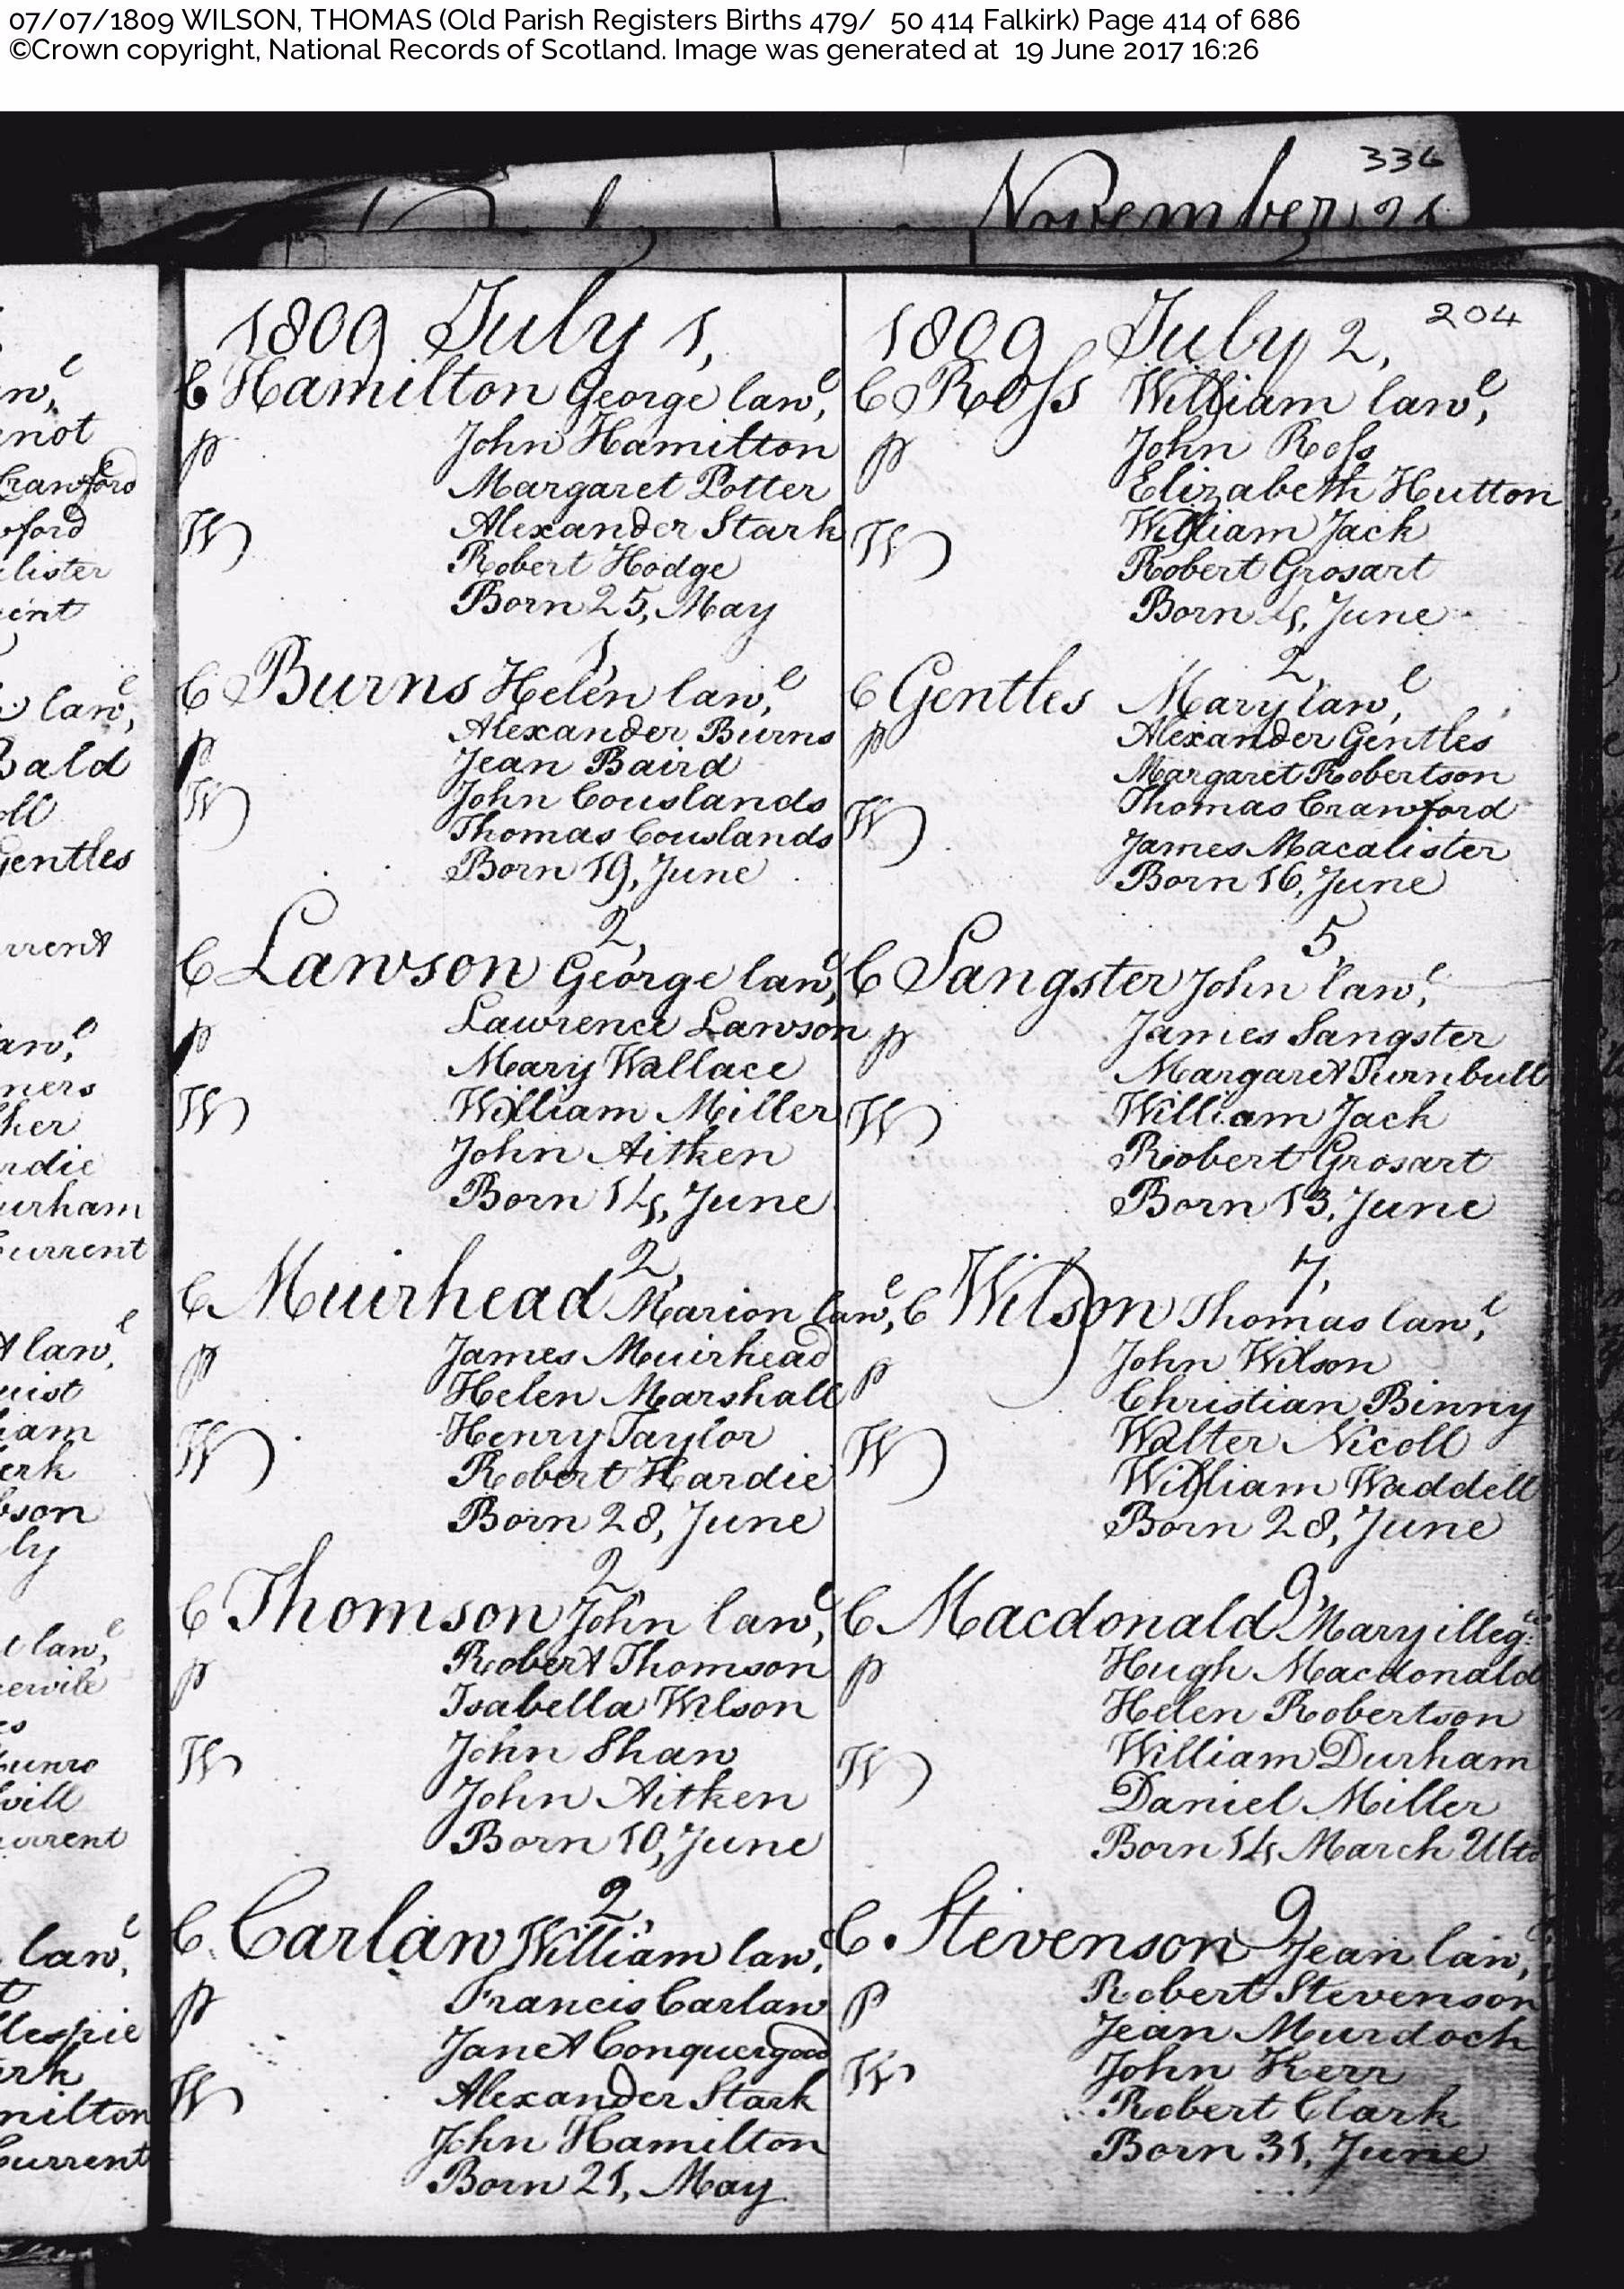 07/07/1809 WILSON, THOMAS (Old Parish Registers Births 479/ 50 414 Falkirk) Page 414 of 686
©Crown copyright, National Records of Scotland. Image was generated at 19 June 2017 16:26
336
November
204
1809 July 1,
C Hamilton George law.l,
p John Hamilton
Margaret Potter
W Alexander Stark
Robert Hodge
Born 25, May
1,
C Burns Helen law.l,
Alexander Burns
p Jean Baird
W John Couslands
Thomas Couslands
Born 19, June
2,
C Lawson George law.l,
p Lawrence Lawson
Mary Wallace
W William Miller
John Aitken
Born 14, June
2,
C Muirhead Marion law.l,
p James Muirhead
Helen Marshall
W Henry Taylor
Robert Hardie
Born 28, June
2,
C Thomson John law.l,
p Robert Thomson
Isabella Wilson
W John Shaw
John Aitken
Born 10, June
2,
C Carlaw William law.l,
p Francis Carlaw
Janet Conquergood
W Alexander Stark
John Hamilton
Born 21, May
1809 July 2,
C Ross William law.l,
p John Ross
Elizabeth Hutton
W William Jack
Robert Grosart
Born 4, June
2,
C Gentles Mary law.l,
p Alexander Gentles
Margaret Robertson
W Thomas Crawford
James Macalister
Born 16, June
5,
C Sangster John law.l,
p James Sangster
Margaret Turnbull
W William Jack
Robert Grosart
Born 13, June
7,
C Wilson Thomas law.l,
p John Wilson
Christian Binny
W Walter Nicoll
William Waddell
Born 28, June
9,
C Macdonald Mary illeg.
p Hugh Macdonald
Helen Robertson
W William Durham
Daniel Miller
Born 14 March Ulto
9
C. Stevenson Jean law,
p Robert Stevenson
Jean Murdoch
W John Kerr
Robert Clark
Born 31, June